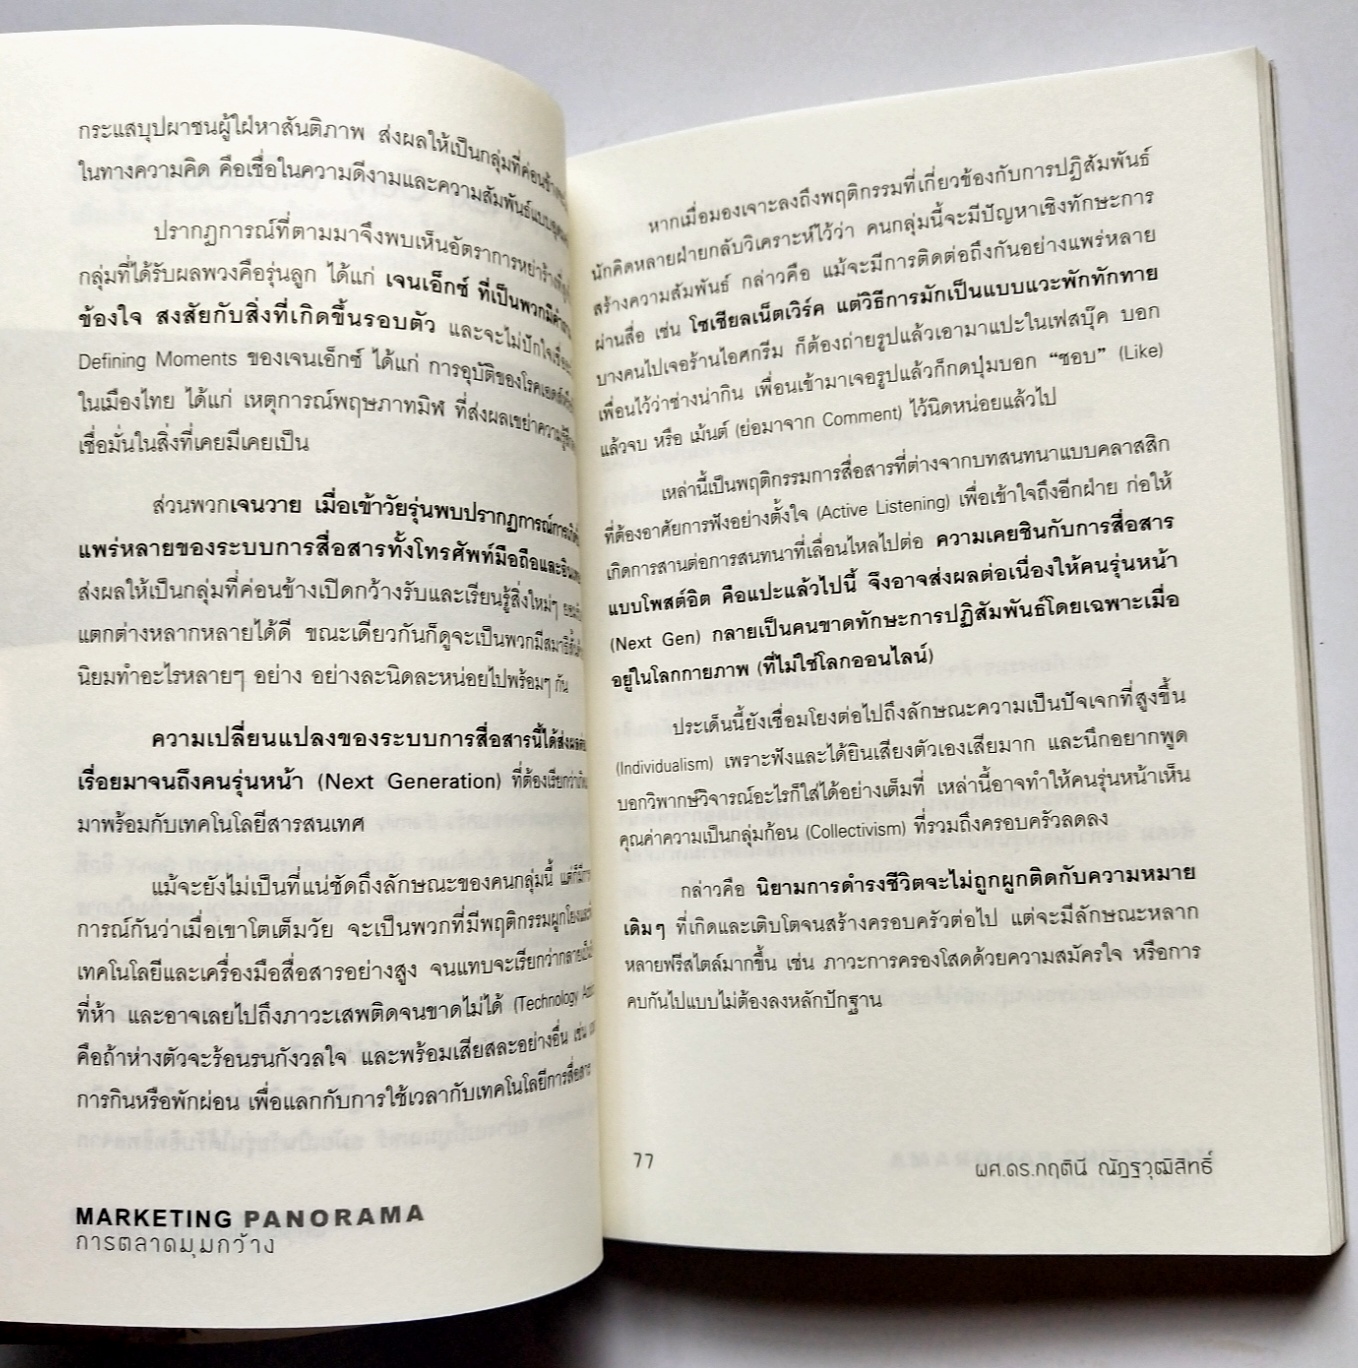 กระแสบุปผาชนผู้ใฝ่หาสันติภาพ ส่งผลให้เป็นกลุ่มที่ค่อนข้าง
ในทางความคิด คือเชื่อในความดีงามและความสัมพันธ์แบบ
ปรากฏการณ์ที่ตามมาจึงพบเห็นอัตราการหย่าร้าง
กลุ่มที่ได้รับผลพวงคือรุ่นลูก ได้แก่ เจนเอ็กซ์ ที่เป็นพวกมี
ข้องใจ สงสัยกับสิ่งที่เกิดขึ้นรอบตัว และจะไม่ปักใจ
Defining Moments ของเจนเอ็กซ์ ได้แก่ การอุบัติของโรคเอดส์
ในเมืองไทย ได้แก่ เหตุการณ์พฤษภาทมิฬ ที่ส่งผลเขย่าความ
เชื่อมั่นในสิ่งที่เคยมีเคยเป็น
ส่วนพวกเจนวาย เมื่อเข้าวัยรุ่นพบปรากฏการณ์
แพร่หลายของระบบการสื่อสารทั้งโทรศัพท์มือถือและ
ส่งผลให้เป็นกลุ่มที่ค่อนข้างเปิดกว้างรับและเรียนรู้สิ่งใหม่ๆ
แตกต่างหลากหลายได้ดี ขณะเดียวกันก็ดูจะเป็นพวกมีสมาธิสั้น
นิยมทำอะไรหลายๆ อย่าง อย่างละนิดละหน่อยไปพร้อมๆ กัน
ความเปลี่ยนแปลงของระบบการสื่อสารนี้ได้ส่งผล
เรื่อยมาจนถึงคนรุ่นหน้า (Next Generation) ที่ต้องเรียกว่า
มาพร้อมกับเทคโนโลยีสารสนเทศ
แม้จะยังไม่เป็นที่แน่ชัดถึงลักษณะของคนกลุ่มนี้ แต่ก็มีการ
การณ์กันว่าเมื่อเขาโตเต็มวัย จะเป็นพวกที่มีพฤติกรรมผูกโยง
เทคโนโลยีและเครื่องมือสื่อสารอย่างสูง จนแทบจะเรียกว่ากลายเป็น
ที่ห้า และอาจเลยไปถึงภาวะเสพติดจนขาดไม่ได้ (Technology
คือถ้าห่างตัวจะร้อนรนกังวลใจ และพร้อมเสียสละอย่างอื่น เช่น
การกินหรือพักผ่อน เพื่อแลกกับการใช้เวลากับเทคโนโลยีการสื่อสาร
MARKETING PANORAMA
การตลาดมุมกว้าง
หากเมื่อมองเจาะลงถึงพฤติกรรมที่เกี่ยวข้องกับการปฏิสัมพันธ์
นักคิดหลายฝ่ายกลับวิเคราะห์ไว้ว่า คนกลุ่มนี้จะมีปัญหาเชิงทักษะการ
สร้างความสัมพันธ์ กล่าวคือ แม้จะมีการติดต่อถึงกันอย่างแพร่หลาย
ผ่านสื่อ เช่น โซเชียลเน็ตเวิร์ค แต่วิธีการมักเป็นแบบแวะพักทักทาย
บางคนไปเจอร้านไอศกรีม ก็ต้องถ่ายรูปแล้วเอามาแปะในเฟสบุ๊ค บอก
เพื่อนไว้ว่าช่างน่ากิน เพื่อนเข้ามาเจอรูปแล้วก็กดปุ่มบอก “ชอบ” (Like)
แล้วจบ หรือ เม้นต์ (ย่อมาจาก Comment) ไว้นิดหน่อยแล้วไป
เหล่านี้เป็นพฤติกรรมการสื่อสารที่ต่างจากบทสนทนาแบบคลาสสิก
ที่ต้องอาศัยการฟังอย่างตั้งใจ (Active Listening) เพื่อเข้าใจถึงอีกฝ่าย ก่อให้
เกิดการสานต่อการสนทนาที่เลื่อนไหลไปต่อ ความเคยชินกับการสื่อสาร
แบบโพสต์อิต คือแปะแล้วไปนี้ จึงอาจส่งผลต่อเนื่องให้คนรุ่นหน้า
(Next Gen) กลายเป็นคนขาดทักษะการปฏิสัมพันธ์โดยเฉพาะเมื่อ
อยู่ในโลกกายภาพ (ที่ไม่ใช่โลกออนไลน์)
ประเด็นนี้ยังเชื่อมโยงต่อไปถึงลักษณะความเป็นปัจเจกที่สูงขึ้น
(Individualism) เพราะฟังและได้ยินเสียงตัวเองเสียมาก และนึกอยากพูด
บอกวิพากษ์วิจารณ์อะไรก็ใส่ได้อย่างเต็มที่ เหล่านี้อาจทำให้คนรุ่นหน้าเห็น
คุณค่าความเป็นกลุ่มก้อน (Collectivism) ที่รวมถึงครอบครัวลดลง
กล่าวคือ นิยามการดำรงชีวิตจะไม่ถูกผูกติดกับความหมาย
เดิมๆ ที่เกิดและเติบโตจนสร้างครอบครัวต่อไป แต่จะมีลักษณะหลาก
หลายฟรีสไตล์มากขึ้น เช่น ภาวะการครองโสดด้วยความสมัครใจ หรือการ
คบกันไปแบบไม่ต้องลงหลักปักฐาน
77
ผศ.ดร.กฤตินี ณัฏฐวุฒิสิทธิ์